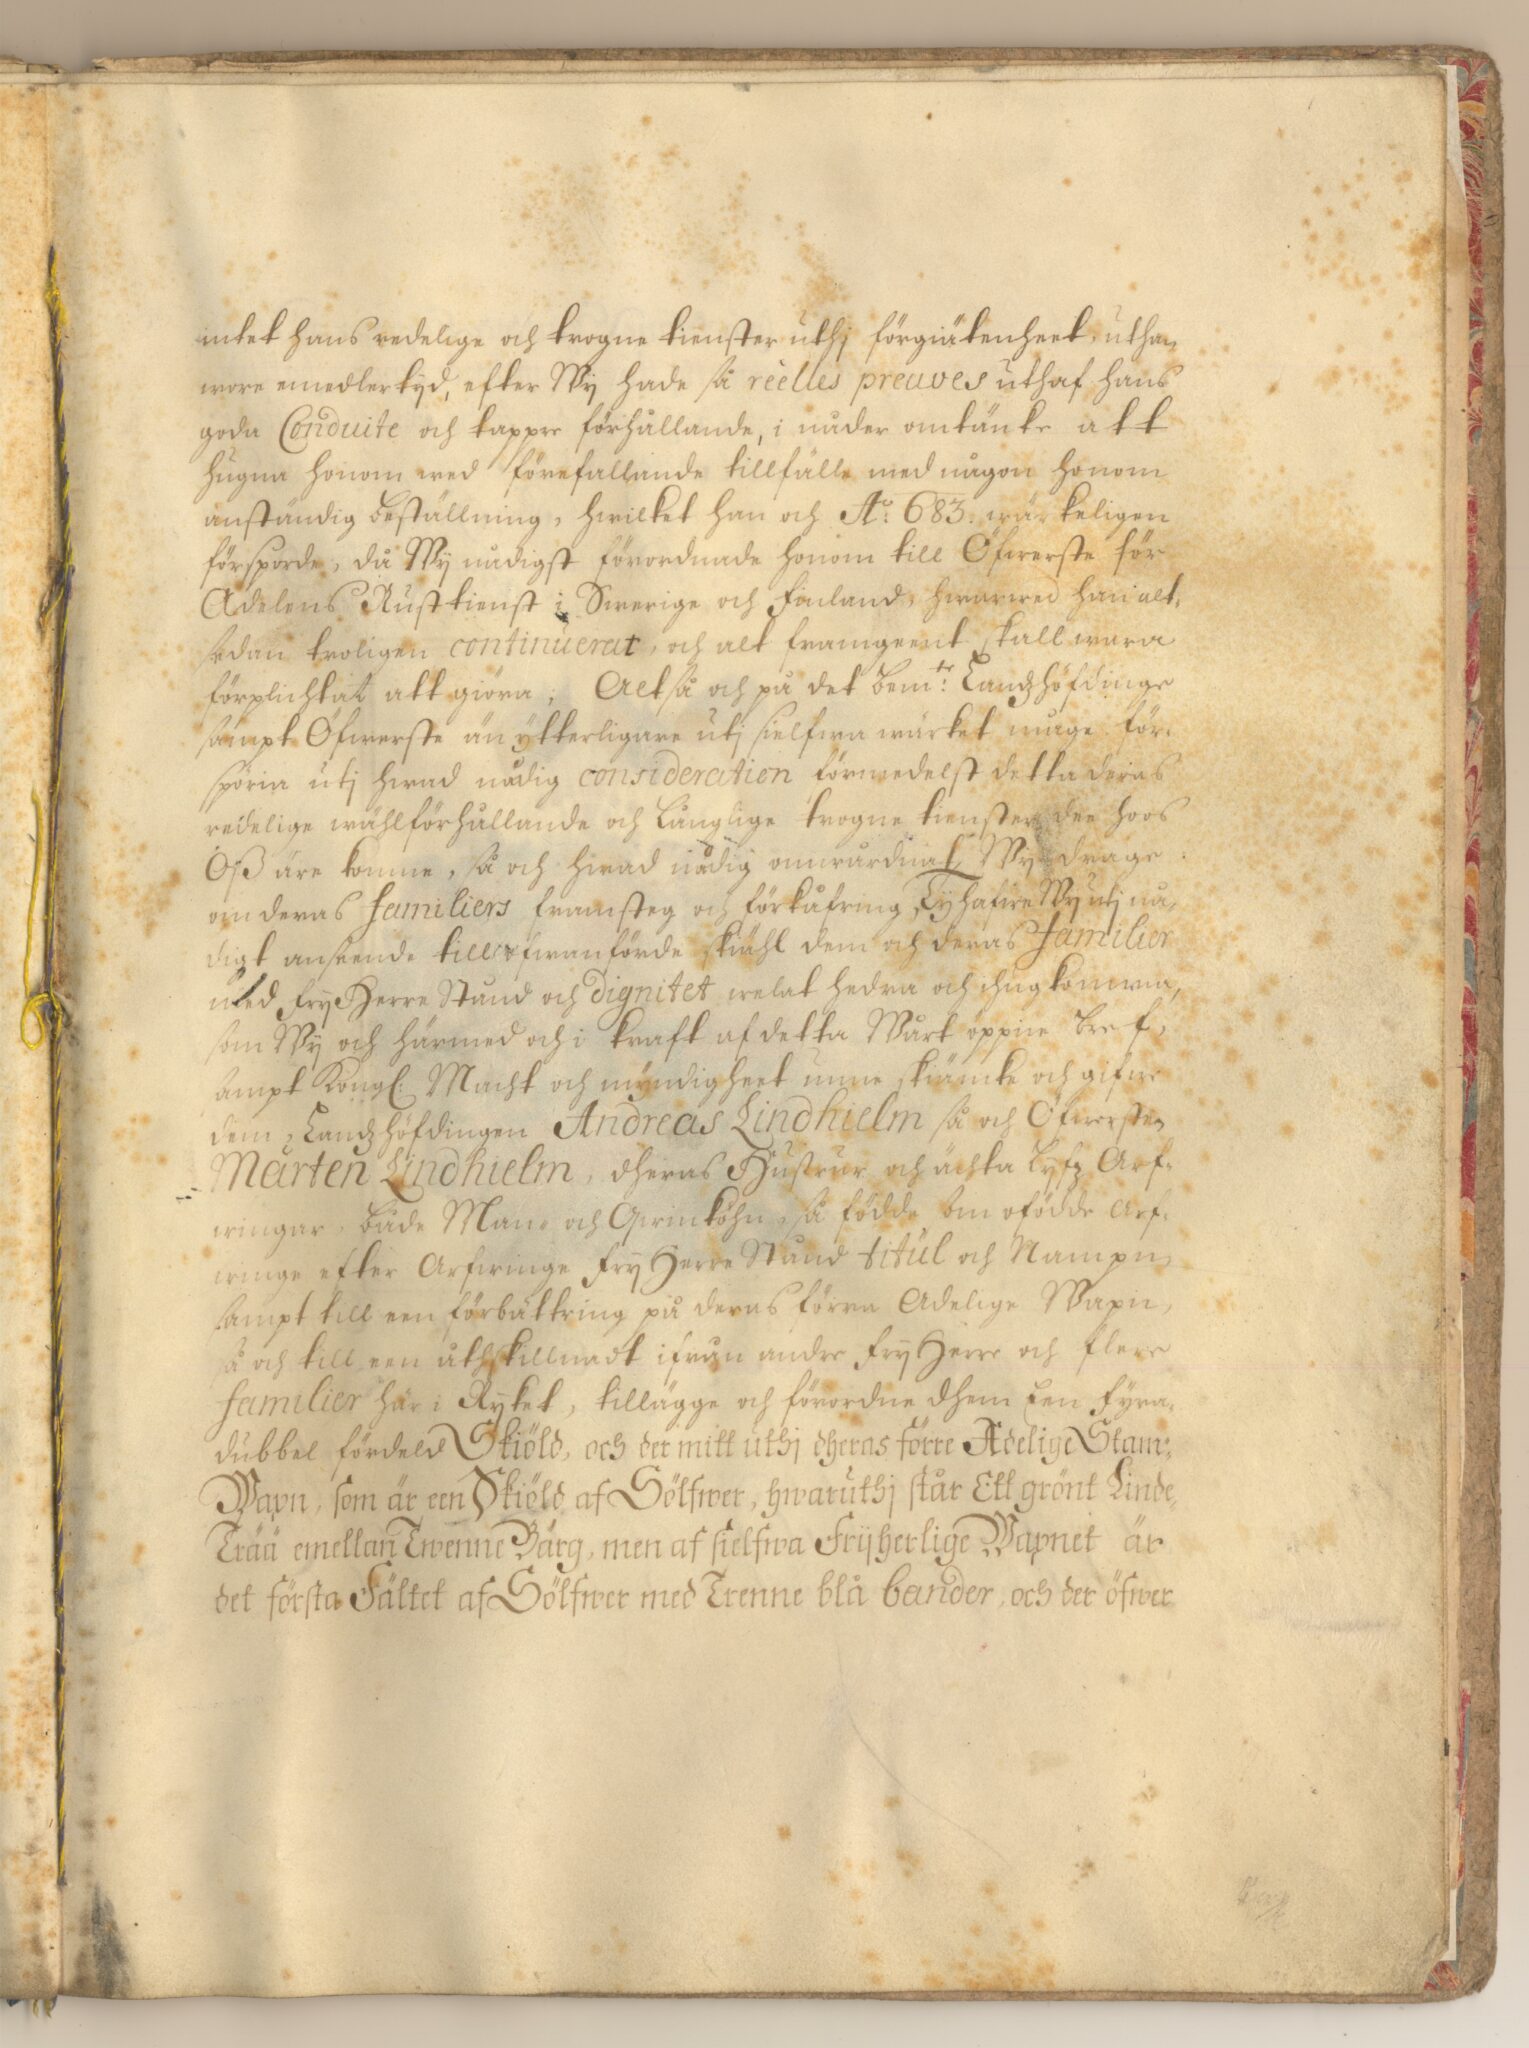 intet hans redelige och trogne tienster uthj förgiätenheet, uthan
wore emedlertyd, efter Wy hade så rèelles preuves uthaf hans
goda Conduite och tappre förhållande, i nåder omtänkt att
hugna honom wed förefallande tillfälle med någon honom
anständig beställning, hwilket han och A:o 683. wärkeligen
försporde, då Wy nådigst förordnade honom till Öfwerste för
Adelens Russtienst i Swerige och Finland, hwarwed han alt-
sedan troligen continuerat, och alt framgeent skall wara
förplichtat att giöra; Altså och på det bem:te Landzhöfdinge
sampt Öfwerste än ytterligare utj sielfwa wärket måge för-
spöria utj hwad nådig consideration förmedelst detta deras
redelige wählförhållande och långlige trogne tienster dee hoos
Oß äre komne, så och hwad nådig omwårdnat Wy drage
om deras familiers framsteg och förkåfring, Ty hafwe Wy utj nå-
digt anseende till ofwanförde skiähl dem och deras familier
med FryHerre Stånd och dignitet welat hedra och ihugkomma,
som Wy och härmed och i kraft af detta Wårt öppne bref,
sampt Kongl: Macht och myndigheet unne skiäncke och gifwe
dem, Landzhöfdingen Andreas Lindhielm så och Öfwersten
Mårten Lindhielm, dheras Hustrur och ächta Lyfz Arf-
wingar, både Man- och Qwinköhn, så födde som ofödde Arf-
winge efter Arfwinge FryHerre Stånd titul och Nampn,
sampt till een förbättring på deras förra Adelige Wapn,
så och till een åthskillnadt ifrån andre FryHerre och flere
familier här i Ryket, tillägge och förordne dhem Een Fyra-
dubbel fördeld Skiöld, och der mitt uthj dheras förre Adelige Stam-
Wapn, som är een Skiöld af Sölfwer, hwaruthj står Ett grönt Linde-
Trää emellan Twenne Bärg, men af sielfwa Frijherlige Wapnet är
det första Fältet af Sölfwer med Trenne blå bander, och der öfwer